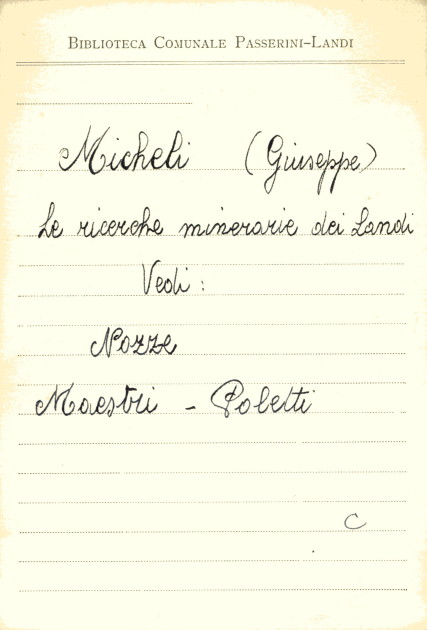 Biblioteca Comunale Passerini-Landi
Micheli (Giuseppe)
Le ricerche minerarie dei Landi
Vedi:
Nozze
Maestri - Poletti
C